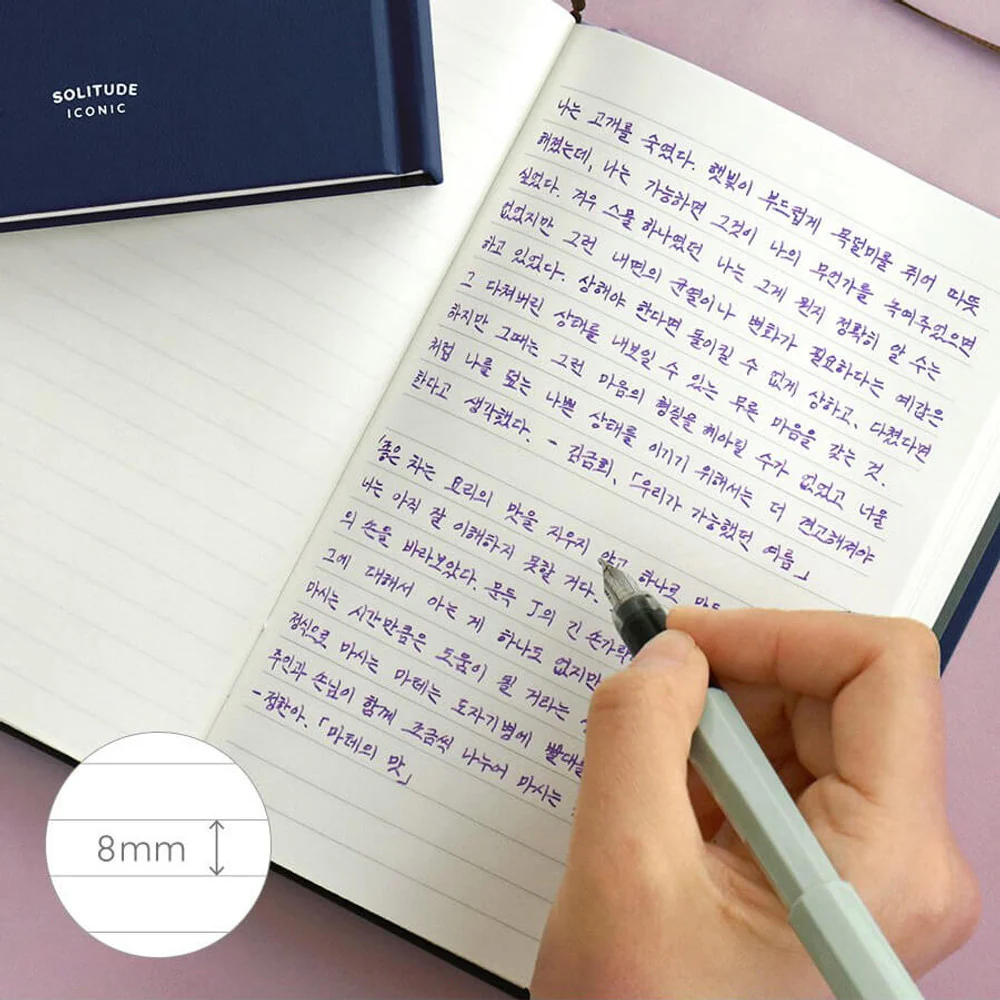 SOLITUDE
ICONIC
나는 고개를 숙였다. 햇빛이 부드럽게 목덜미를 쥐어 따뜻
해졌는데, 나는 가능하면 그것이 나의 무언가를 녹여주었으면
싶었다. 겨우 스물 하나였던 나는 그게 뭔지 정확히 알 수는
없었지만 그런 내면의 균열이나 변화가 필요하다는 예감은
하고 있었다. 상해야 한다면 돌이킬 수 없게 상하고, 다쳤다면
그 다쳐버린 상태를 내보일 수 있는 무른 마음을 갖는 것.
하지만 그때는 그런 마음의 형질을 헤아릴 수가 없었고 너울
처럼 나를 덮는 나쁜 상태를 이기기 위해서는 더 견고해져야
한다고 생각했다. - 김금희, 「우리가 가능했던 여름」
「좋은 차는 요리의 맛을 지우지 않고 하나로
나는 아직 잘 이해하지 못할 거다.
의 손을 바라보았다. 문득 J의 긴 손가락
그에 대해서 아는 게 하나도 없지만
마시는 시간만큼은 도움이 될 거라는
정식으로 마시는 마테는 도자기병에 빨대를
주인과 손님이 함께 조금씩 나누어 마시는
- 정한아, 「마테의 맛」
8mm